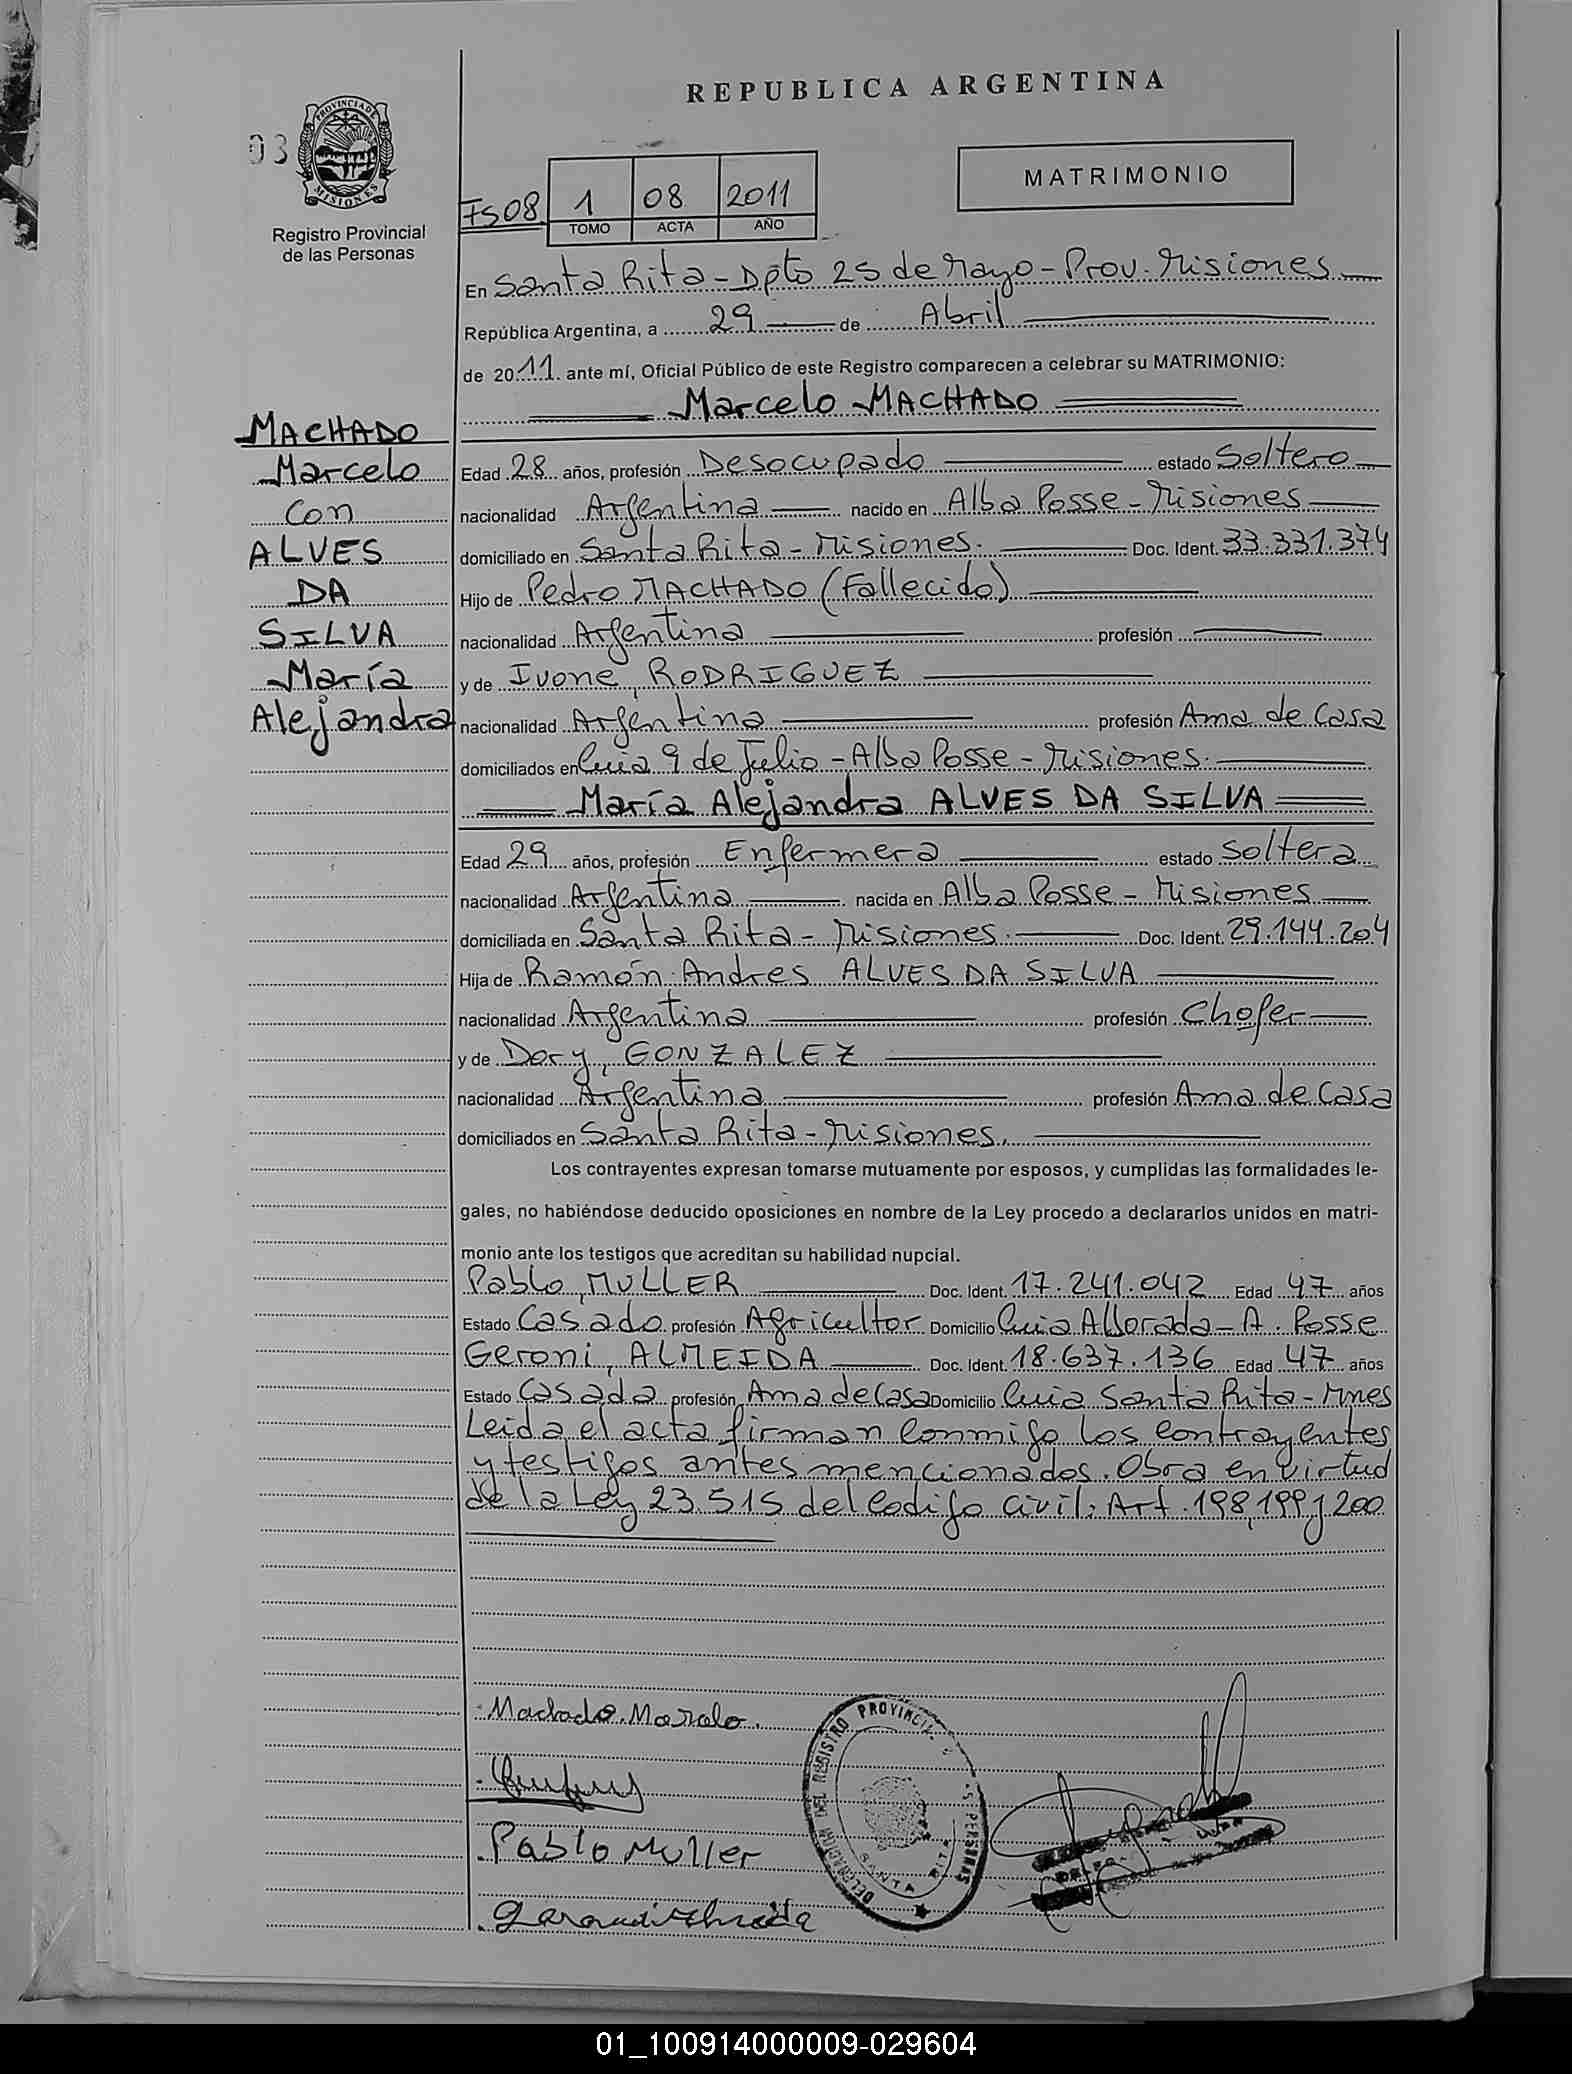 REPUBLICA ARGENTINA
03
PROVINCIA DE
MISIONES
Registro Provincial
de las Personas
MATRIMONIO
Fs 08
1 08 2011
TOMO ACTA AÑO
En Santa Rita - Dpto 25 de Mayo - Prov. Misiones
República Argentina, a 29 de Abril
de 2011 ante mí, Oficial Público de este Registro comparecen a celebrar su MATRIMONIO:
Marcelo MACHADO
MACHADO
Marcelo
con
ALVES
DA
SILVA
María
Alejandra
Edad 28 años, profesión Desocupado estado Soltero
nacionalidad Argentina nacido en Alba Posse - Misiones
domiciliado en Santa Rita - Misiones. Doc. Ident. 33.331.374
Hijo de Pedro MACHADO (Fallecido)
nacionalidad Argentina profesión
y de Ivone, RODRIGUEZ
nacionalidad Argentina profesión Ama de Casa
domiciliados en Cnia 9 de Julio - Alba Posse - Misiones.
María Alejandra ALVES DA SILVA
Edad 29 años, profesión Enfermera estado Soltera
nacionalidad Argentina nacida en Alba Posse - Misiones
domiciliada en Santa Rita - Misiones. Doc. Ident. 29.144.204
Hija de Ramón Andres ALVES DA SILVA
nacionalidad Argentina profesión Chofer
y de Dory, GONZALEZ
nacionalidad Argentina profesión Ama de Casa
domiciliados en Santa Rita - Misiones.
Los contrayentes expresan tomarse mutuamente por esposos, y cumplidas las formalidades le-
gales, no habiéndose deducido oposiciones en nombre de la Ley procedo a declararlos unidos en matri-
monio ante los testigos que acreditan su habilidad nupcial.
Pablo, MULLER Doc. Ident. 17.241.042 Edad 47 años
Estado Casado profesión Agricultor Domicilio Cnia Alborada - A. Posse
Geroni, ALMEIDA Doc. Ident. 18.637.136 Edad 47 años
Estado Casada profesión Ama de Casa Domicilio Cnia Santa Rita - Mnes
Leida el acta firman conmigo los contrayentes
y testigos antes mencionados. Obra en virtud
de la Ley 23.515 del Codigo Civil: Art 198, 199 y 200
Machado Marcelo.
Pablo Muller
DELEGACION DEL REGISTRO PROVINCIAL
PERSONAS
SANTA RITA
01_100914000009-029604